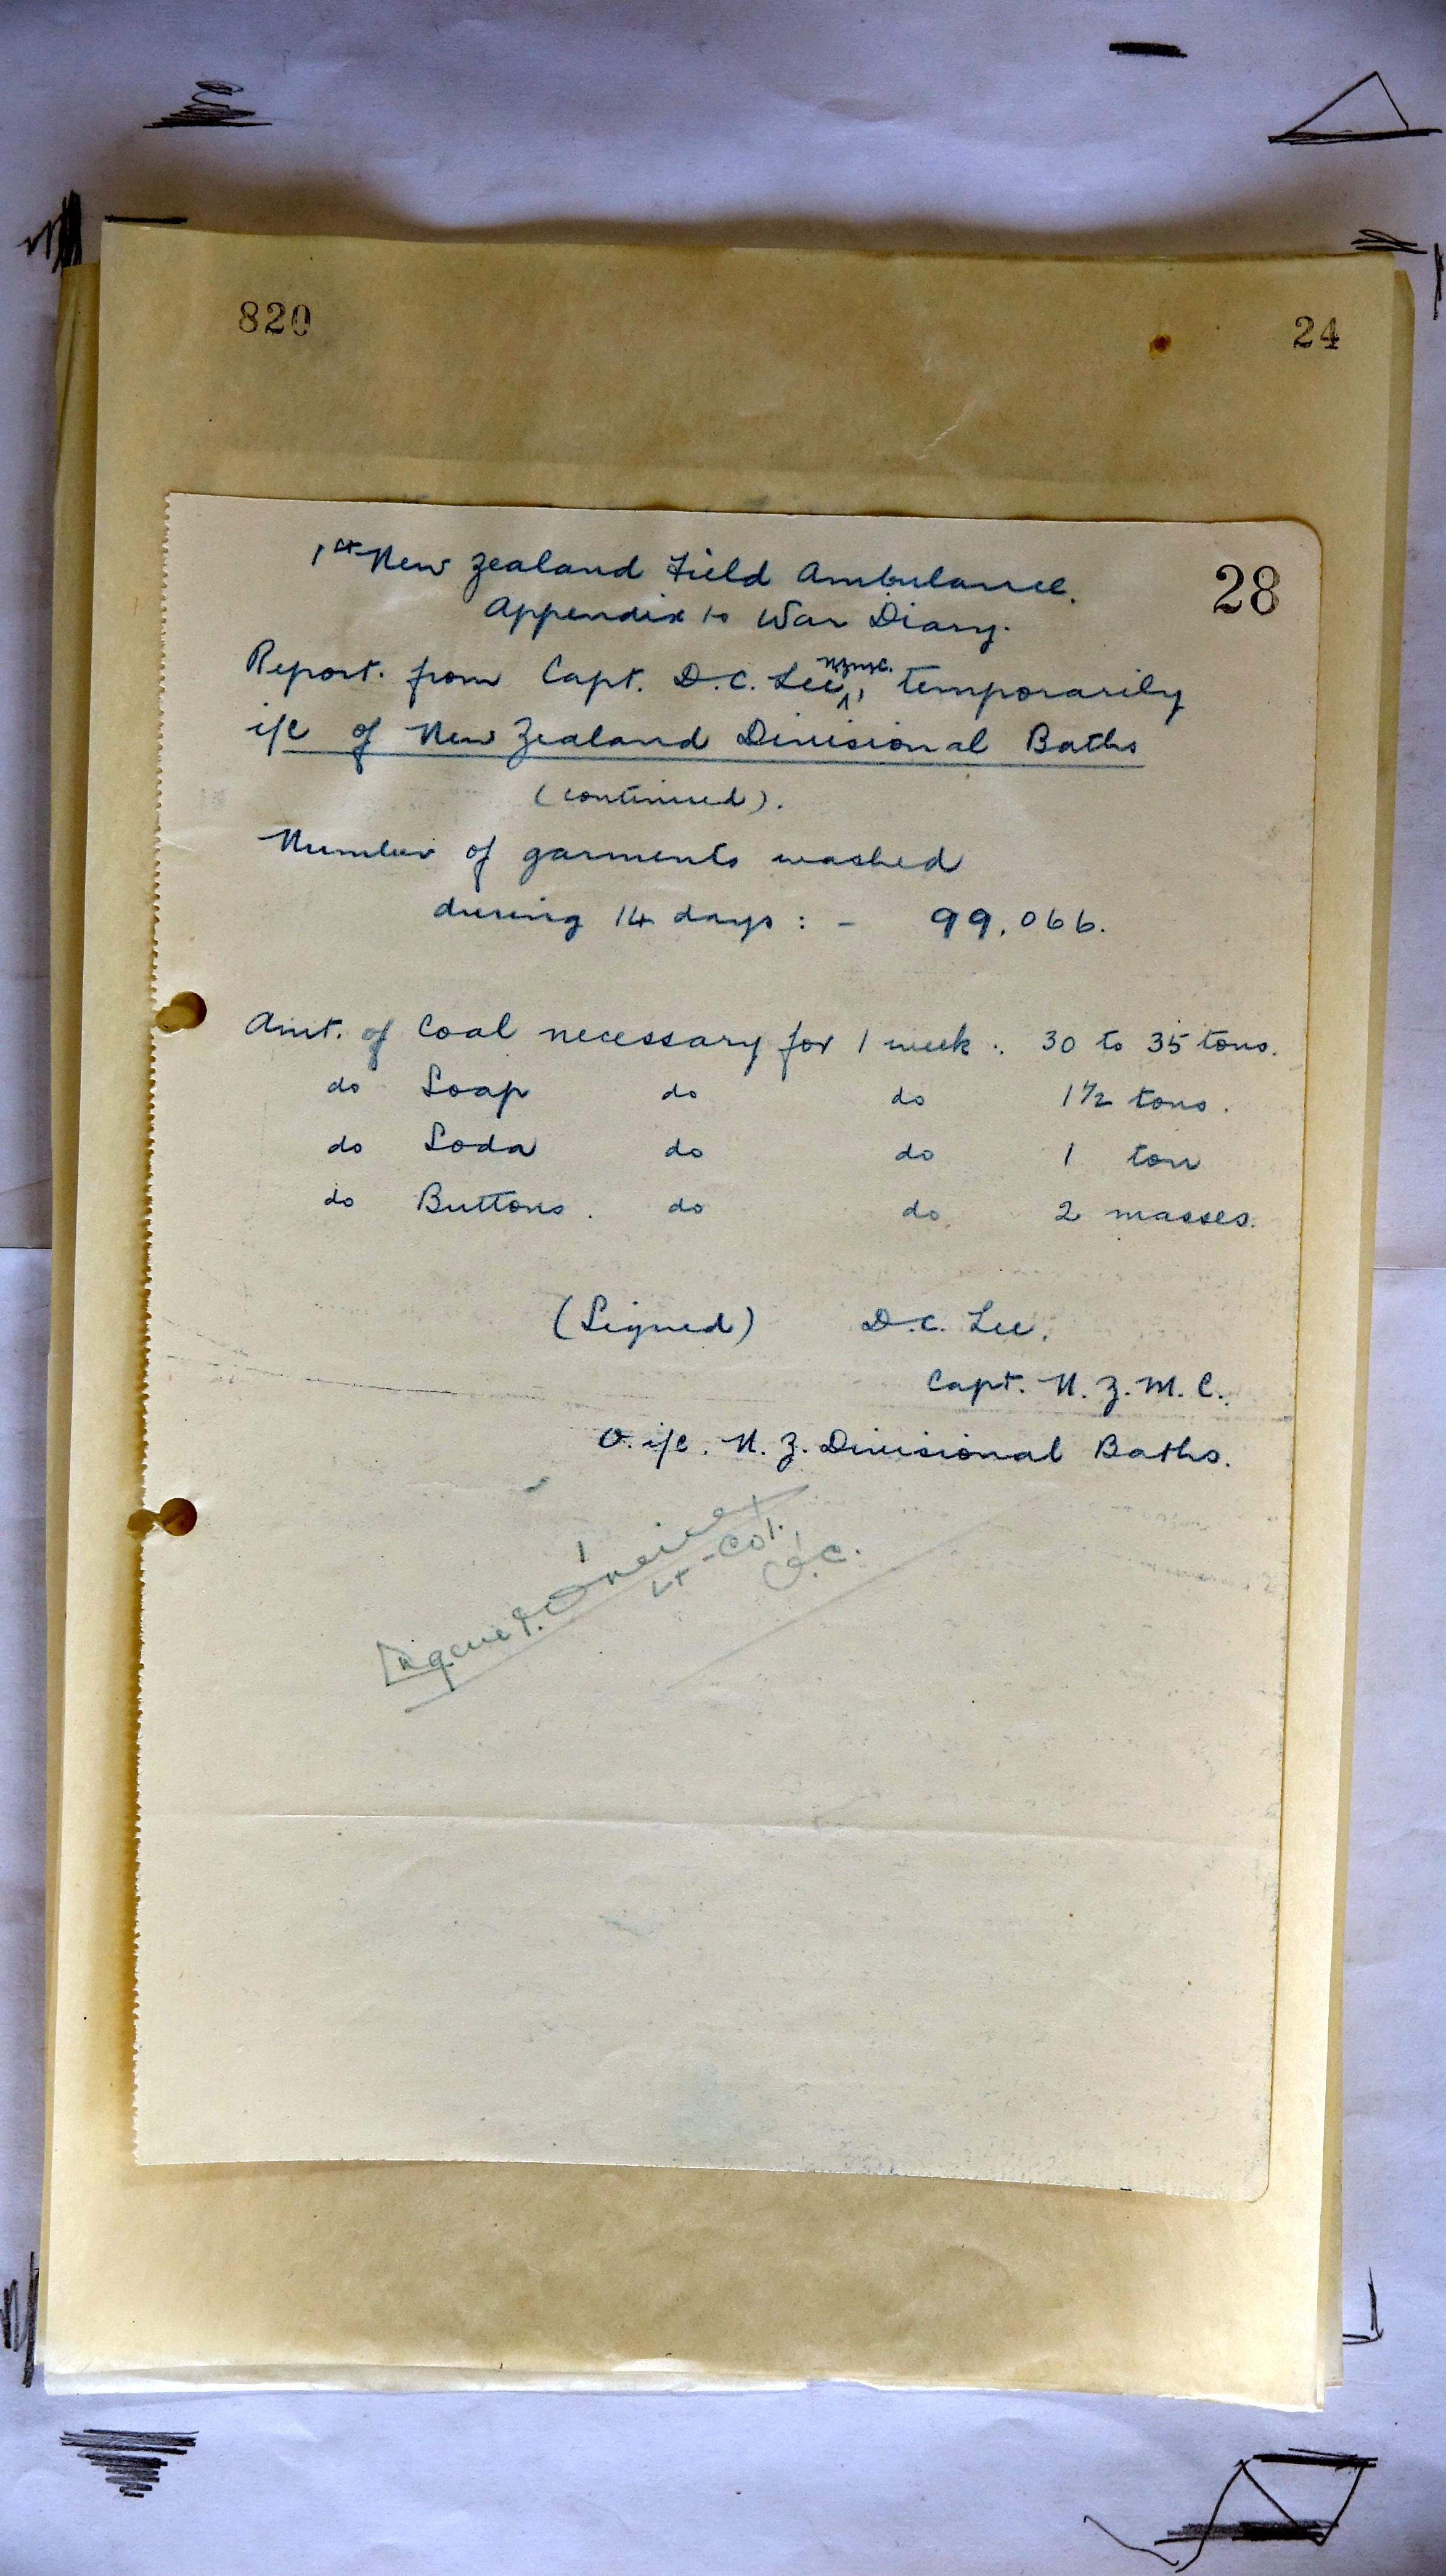 820
24
28
1st New Zealand Field Ambulance.
Appendix to War Diary.
Report. from Capt. D.C. Lee, N.Z.M.C. temporarily
i/c of New Zealand Divisional Baths
(continued).
Number of garments washed
during 14 days : - 99,066.
Amt. of Coal necessary for 1 week : 30 to 35 tons.
do Soap do do 1 1/2 tons.
do Soda do do 1 ton
do Buttons. do do. 2 masses.
(Signed) D.C. Lee.
Capt. N.Z.M.C.
O. i/c. N.Z. Divisional Baths.
Lt-Col.
O.C.